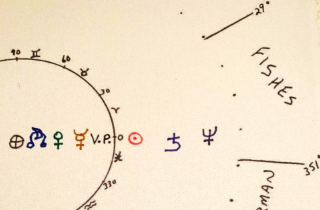 29°
90 ♊
60
FISHES
♉
30
♈
⊕ ☊ ♀ ☿ V.P. 0 ☉ ♄ ♆
♓
351°
330
♒